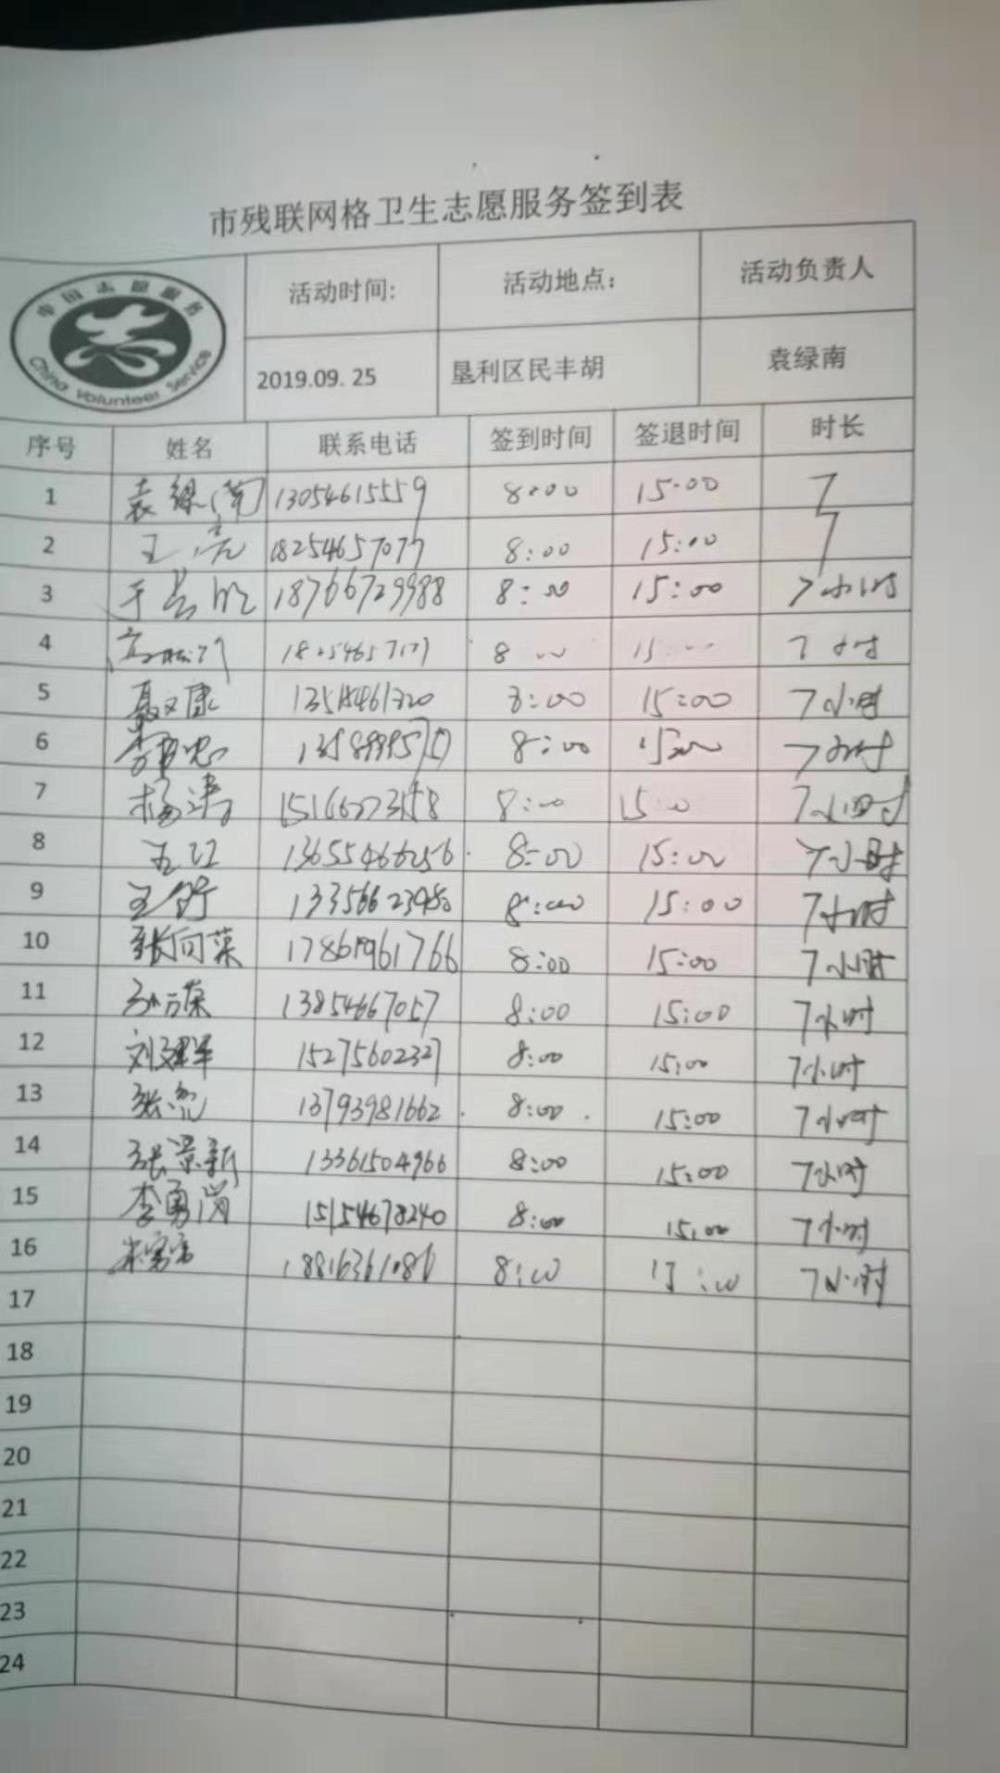 市残联网格卫生志愿服务签到表
中国志愿服务
China Volunteer Service
活动时间: 活动地点: 活动负责人
2019.09.25 垦利区民丰胡 袁绿南
序号 姓名 联系电话 签到时间 签退时间 时长
1 袁绿(南) 13054615559 8:00 15:00 7
2 王亮 18254657077 8:00 15:00 7
3 18766729988 8:00 15:00 7小时
4 8:00 15:00 7小时
5 聂文康 8:00 15:00 7小时
6 8:00 15:00 7小时
7 杨涛 15166273158 8:00 15:00 7小时
8 王江 13655466256 8:00 15:00 7小时
9 13356623980 8:00 15:00 7小时
10 张向荣 17861961766 8:00 15:00 7小时
11 13854667057 8:00 15:00 7小时
12 刘建群 15275602327 8:00 15:00 7小时
13 13793981662 8:00 15:00 7小时
14 张景新 13361504966 8:00 15:00 7小时
15 李勇岗 15154678240 8:00 15:00 7小时
16 18816361086 8:00 15:00 7小时
17
18
19
20
21
22
23
24